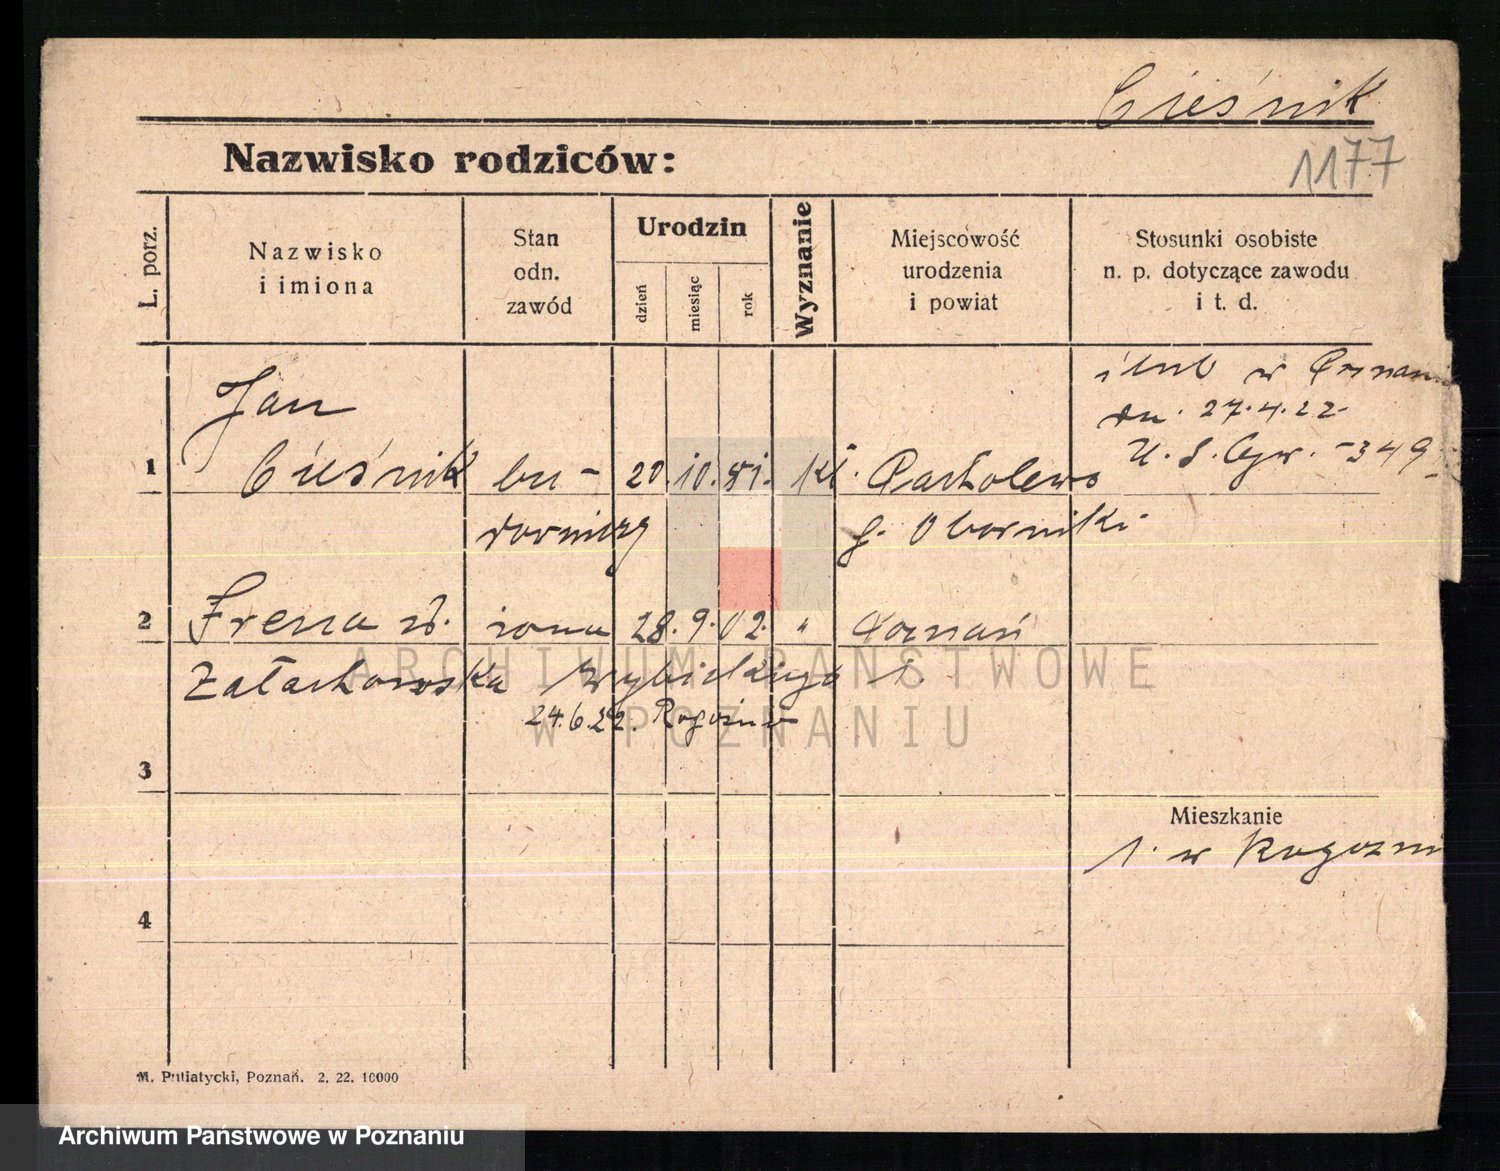 Cieśnik
1177
Nazwisko rodziców:
L. porz.
Nazwisko
i imiona
Stan
odn.
zawód
Urodzin
dzień
miesiąc
rok
Wyznanie
Miejscowość
urodzenia
i powiat
Stosunki osobiste
n. p. dotyczące zawodu
i t. d.
ślub w Poznani
dn. 27.4.22.
U. S. -349
1
Jan
Cieśnik
bu-
downiczy
20. 10. 81. kt. Parkolewo
p. Oborniki
2
Irena ur.
Załachowska
żona 28. 9. 02. " Poznań
24.6.22. Rogoźno
3
Mieszkanie
1. w Rogoźni
4
M. Putiatycki, Poznań. 2. 22. 10000
ARCHIWUM PAŃSTWOWE
W POZNANIU
Archiwum Państwowe w Poznaniu